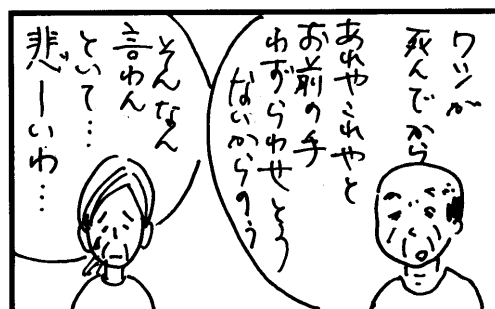 ワシが
死んでから
あれやこれやと
お前の手
わずらわせとう
ないからのう
そんなん
言わん
といて…
悲しいわ…